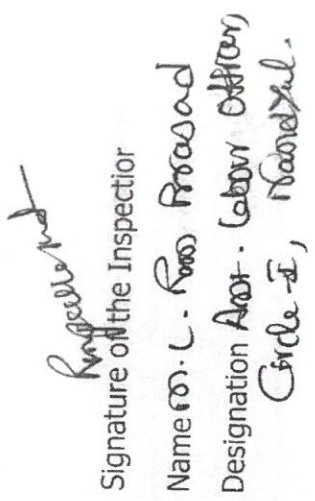 Signature of the Inspectior
Name M. L. Ram Prasad
Designation Asst. Labour Officer,
Circle-I, Nandyal.